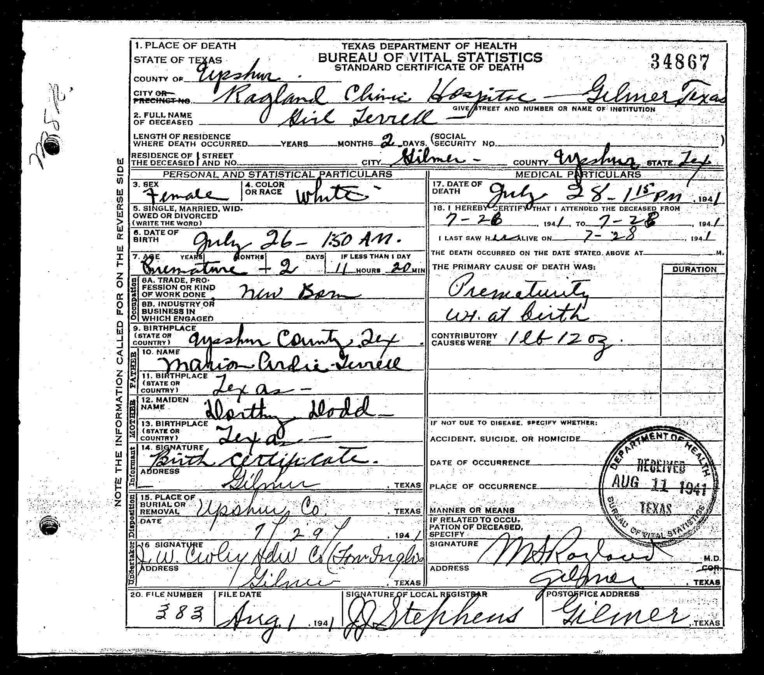 1. PLACE OF DEATH
TEXAS DEPARTMENT OF HEALTH
BUREAU OF VITAL STATISTICS
STANDARD CERTIFICATE OF DEATH
34867
STATE OF TEXAS
COUNTY OF Upshur
CITY OR PRECINCT NO. Ragland Clinic Hospital — Gilmer Texas
GIVE STREET AND NUMBER OR NAME OF INSTITUTION
2. FULL NAME OF DECEASED Girl Terrell —
LENGTH OF RESIDENCE WHERE DEATH OCCURRED YEARS MONTHS 2 DAYS. (SOCIAL SECURITY NO. )
RESIDENCE OF THE DECEASED { STREET AND NO. CITY Gilmer — COUNTY Upshur STATE Tex
PERSONAL AND STATISTICAL PARTICULARS
3. SEX Female
4. COLOR OR RACE White
5. SINGLE, MARRIED, WIDOWED OR DIVORCED (WRITE THE WORD)
6. DATE OF BIRTH July 26 — 150 AM.
7. AGE YEARS MONTHS DAYS IF LESS THAN 1 DAY
Premature + 2 11 HOURS 20 MIN
8A. TRADE, PROFESSION OR KIND OF WORK DONE New Born
8B. INDUSTRY OR BUSINESS IN WHICH ENGAGED
Occupation
9. BIRTHPLACE (STATE OR COUNTRY) Upshur County, Tex
FATHER
10. NAME Marion Ardie Terrell
11. BIRTHPLACE (STATE OR COUNTRY) Texas —
MOTHER
12. MAIDEN NAME Dorthy Dodd —
13. BIRTHPLACE (STATE OR COUNTRY) Texas —
Informant
14. SIGNATURE Birth Certificate.
ADDRESS Gilmer, TEXAS
Disposition
15. PLACE OF BURIAL OR REMOVAL Upshur Co. TEXAS
DATE 7/29/ 1941
Undertaker
16 SIGNATURE J. W. Croley Hdw Co
ADDRESS Gilmer, TEXAS
MEDICAL PARTICULARS
17. DATE OF DEATH July 28 - 1 15 PM, 1941
18. I HEREBY CERTIFY THAT I ATTENDED THE DECEASED FROM
7-26, 1941 TO 7-28, 1941
I LAST SAW HER ALIVE ON 7-28, 1941
THE DEATH OCCURRED ON THE DATE STATED. ABOVE AT M.
THE PRIMARY CAUSE OF DEATH WAS:
DURATION
Prematurity
wt. at birth
CONTRIBUTORY CAUSES WERE 1 lb 12 oz.
IF NOT DUE TO DISEASE. SPECIFY WHETHER:
ACCIDENT, SUICIDE, OR HOMICIDE
DATE OF OCCURRENCE
PLACE OF OCCURRENCE
MANNER OR MEANS
IF RELATED TO OCCUPATION OF DECEASED, SPECIFY
SIGNATURE M S Ragland M.D. COR.
ADDRESS Gilmer, TEXAS
DEPARTMENT OF HEALTH
RECEIVED
AUG 11 1941
TEXAS
BUREAU OF VITAL STATISTICS
20. FILE NUMBER 383
FILE DATE Aug. 1, 1941
SIGNATURE OF LOCAL REGISTRAR JJ Stephens
POSTOFFICE ADDRESS Gilmer, TEXAS
NOTE THE INFORMATION CALLED FOR ON THE REVERSE SIDE